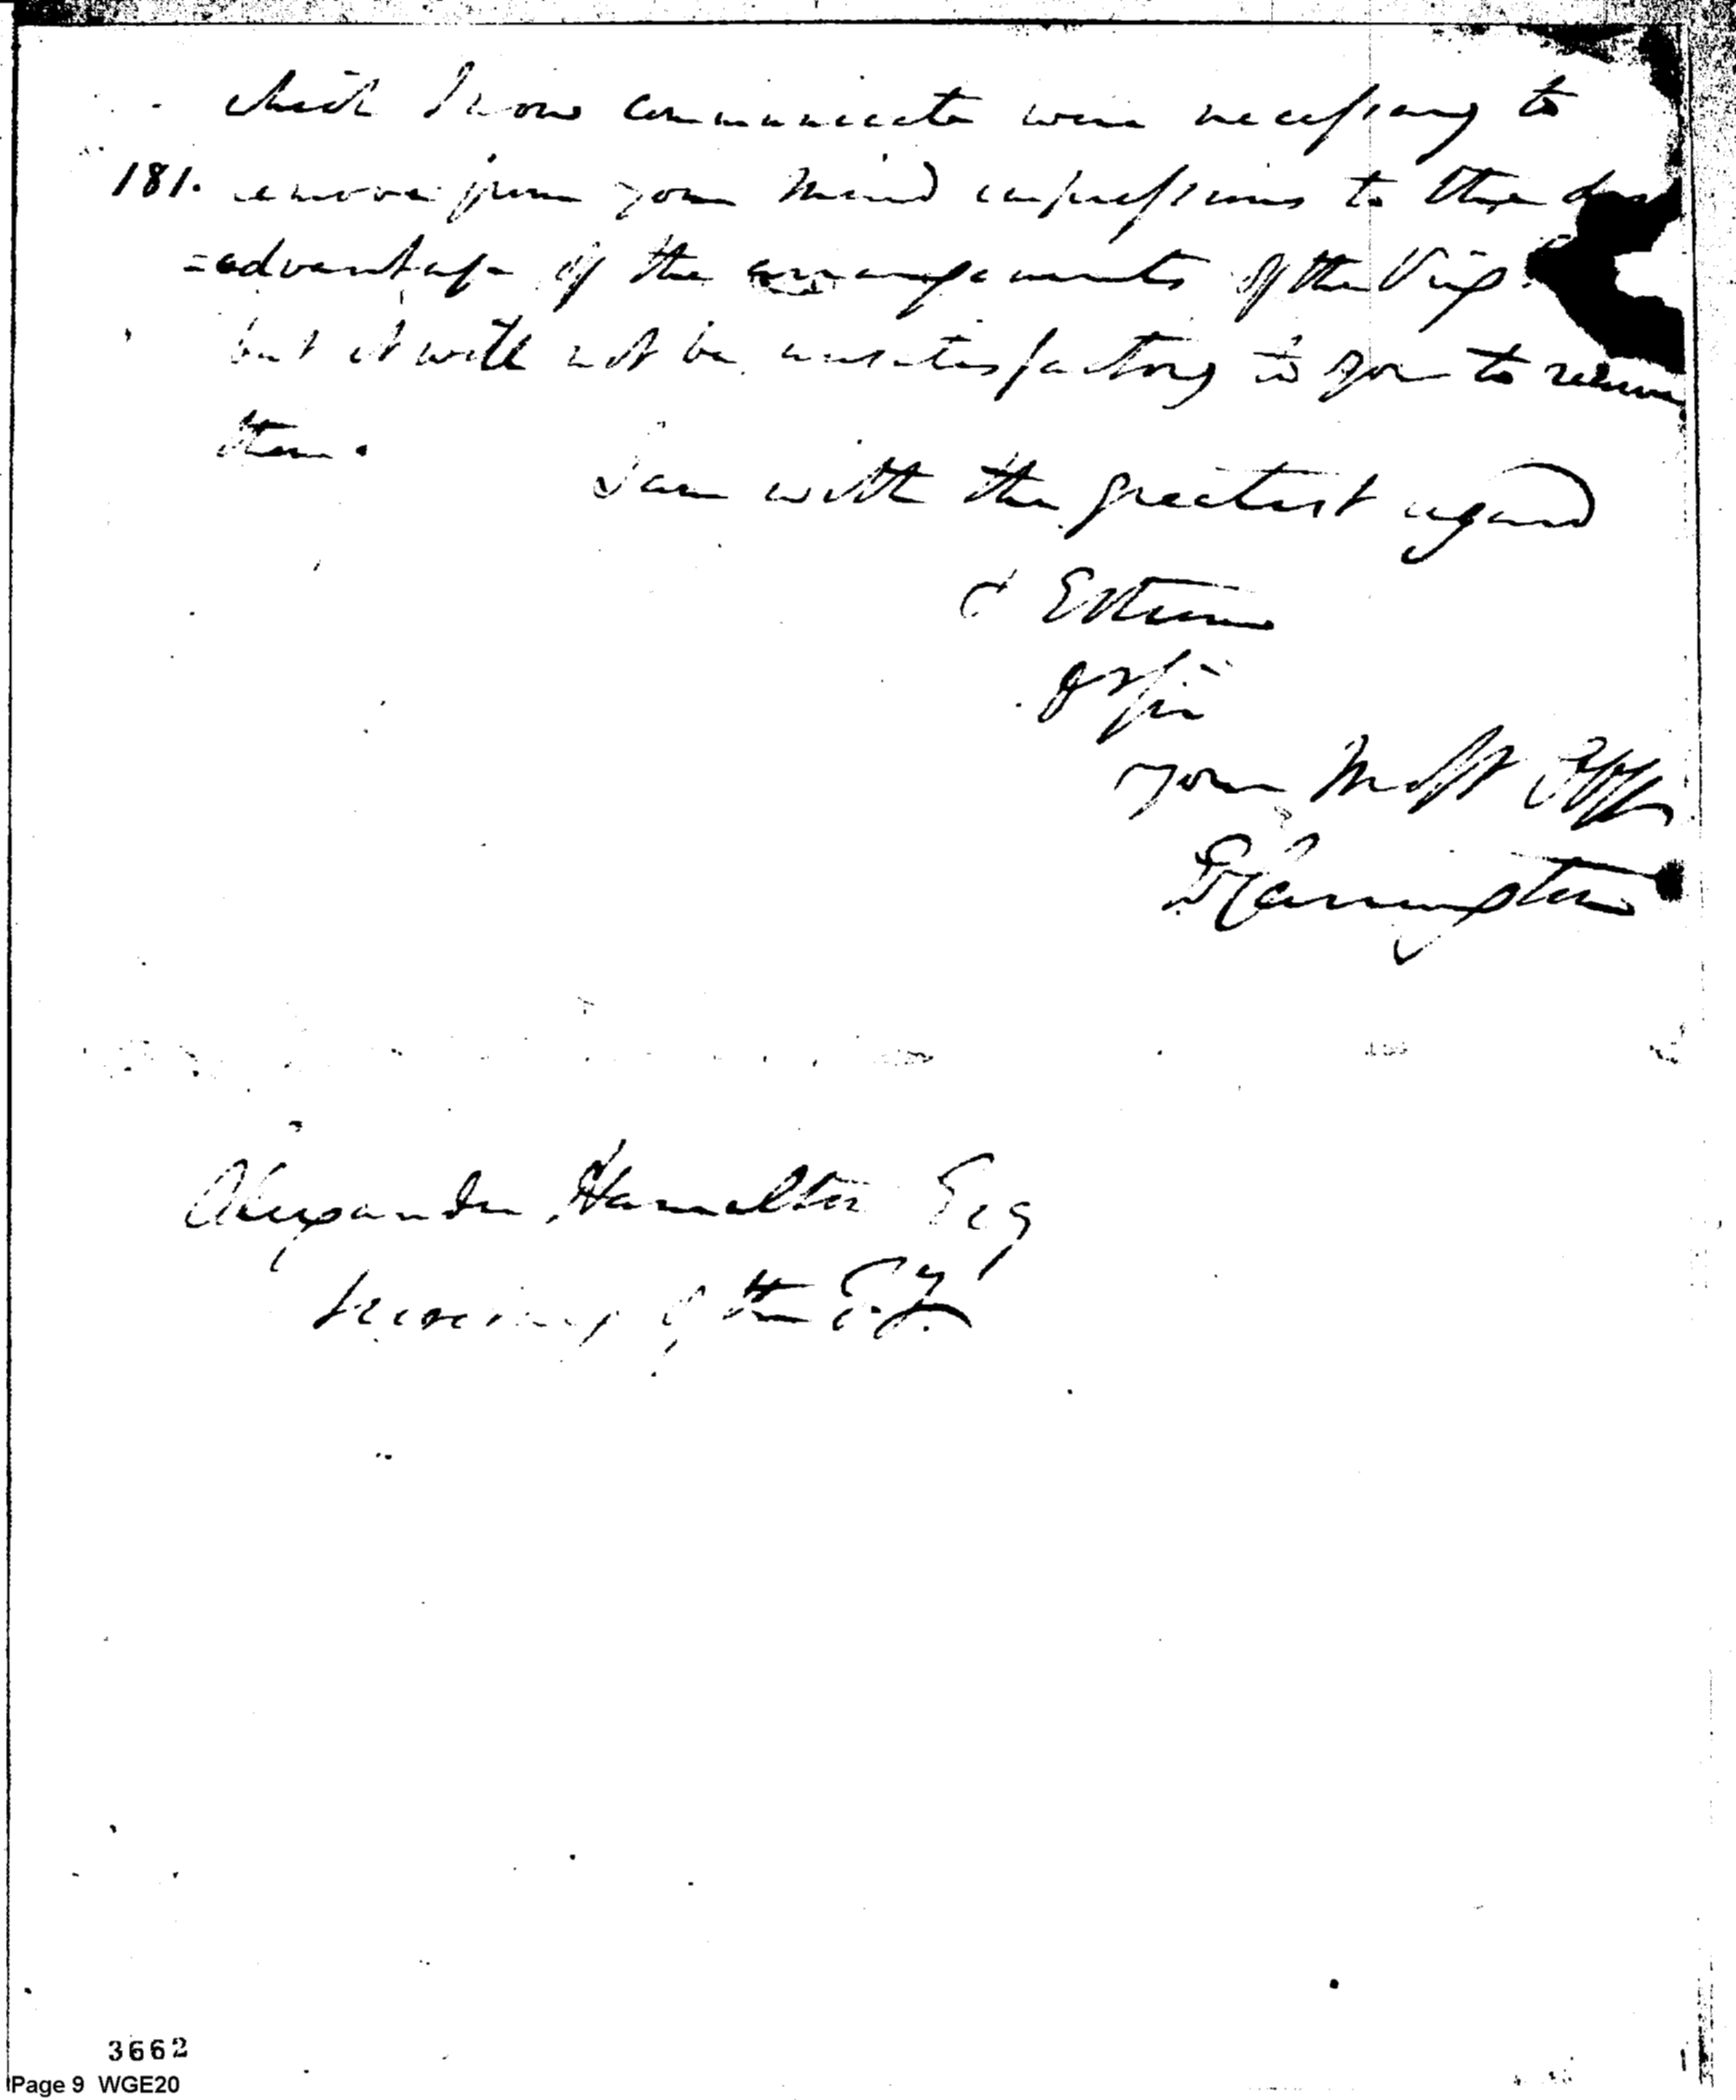 which I now communicate were necessary to
181. remove from your mind impressions to the dis
=advantage of the arrangements of the
but it will not be unsatisfactory to you to receive
them.
I am with the greatest regard
& Esteem
Sir
your Most
E Carrington
Alexander Hamilton Esq
Secretary of the T.
3662
Page 9 WGE20